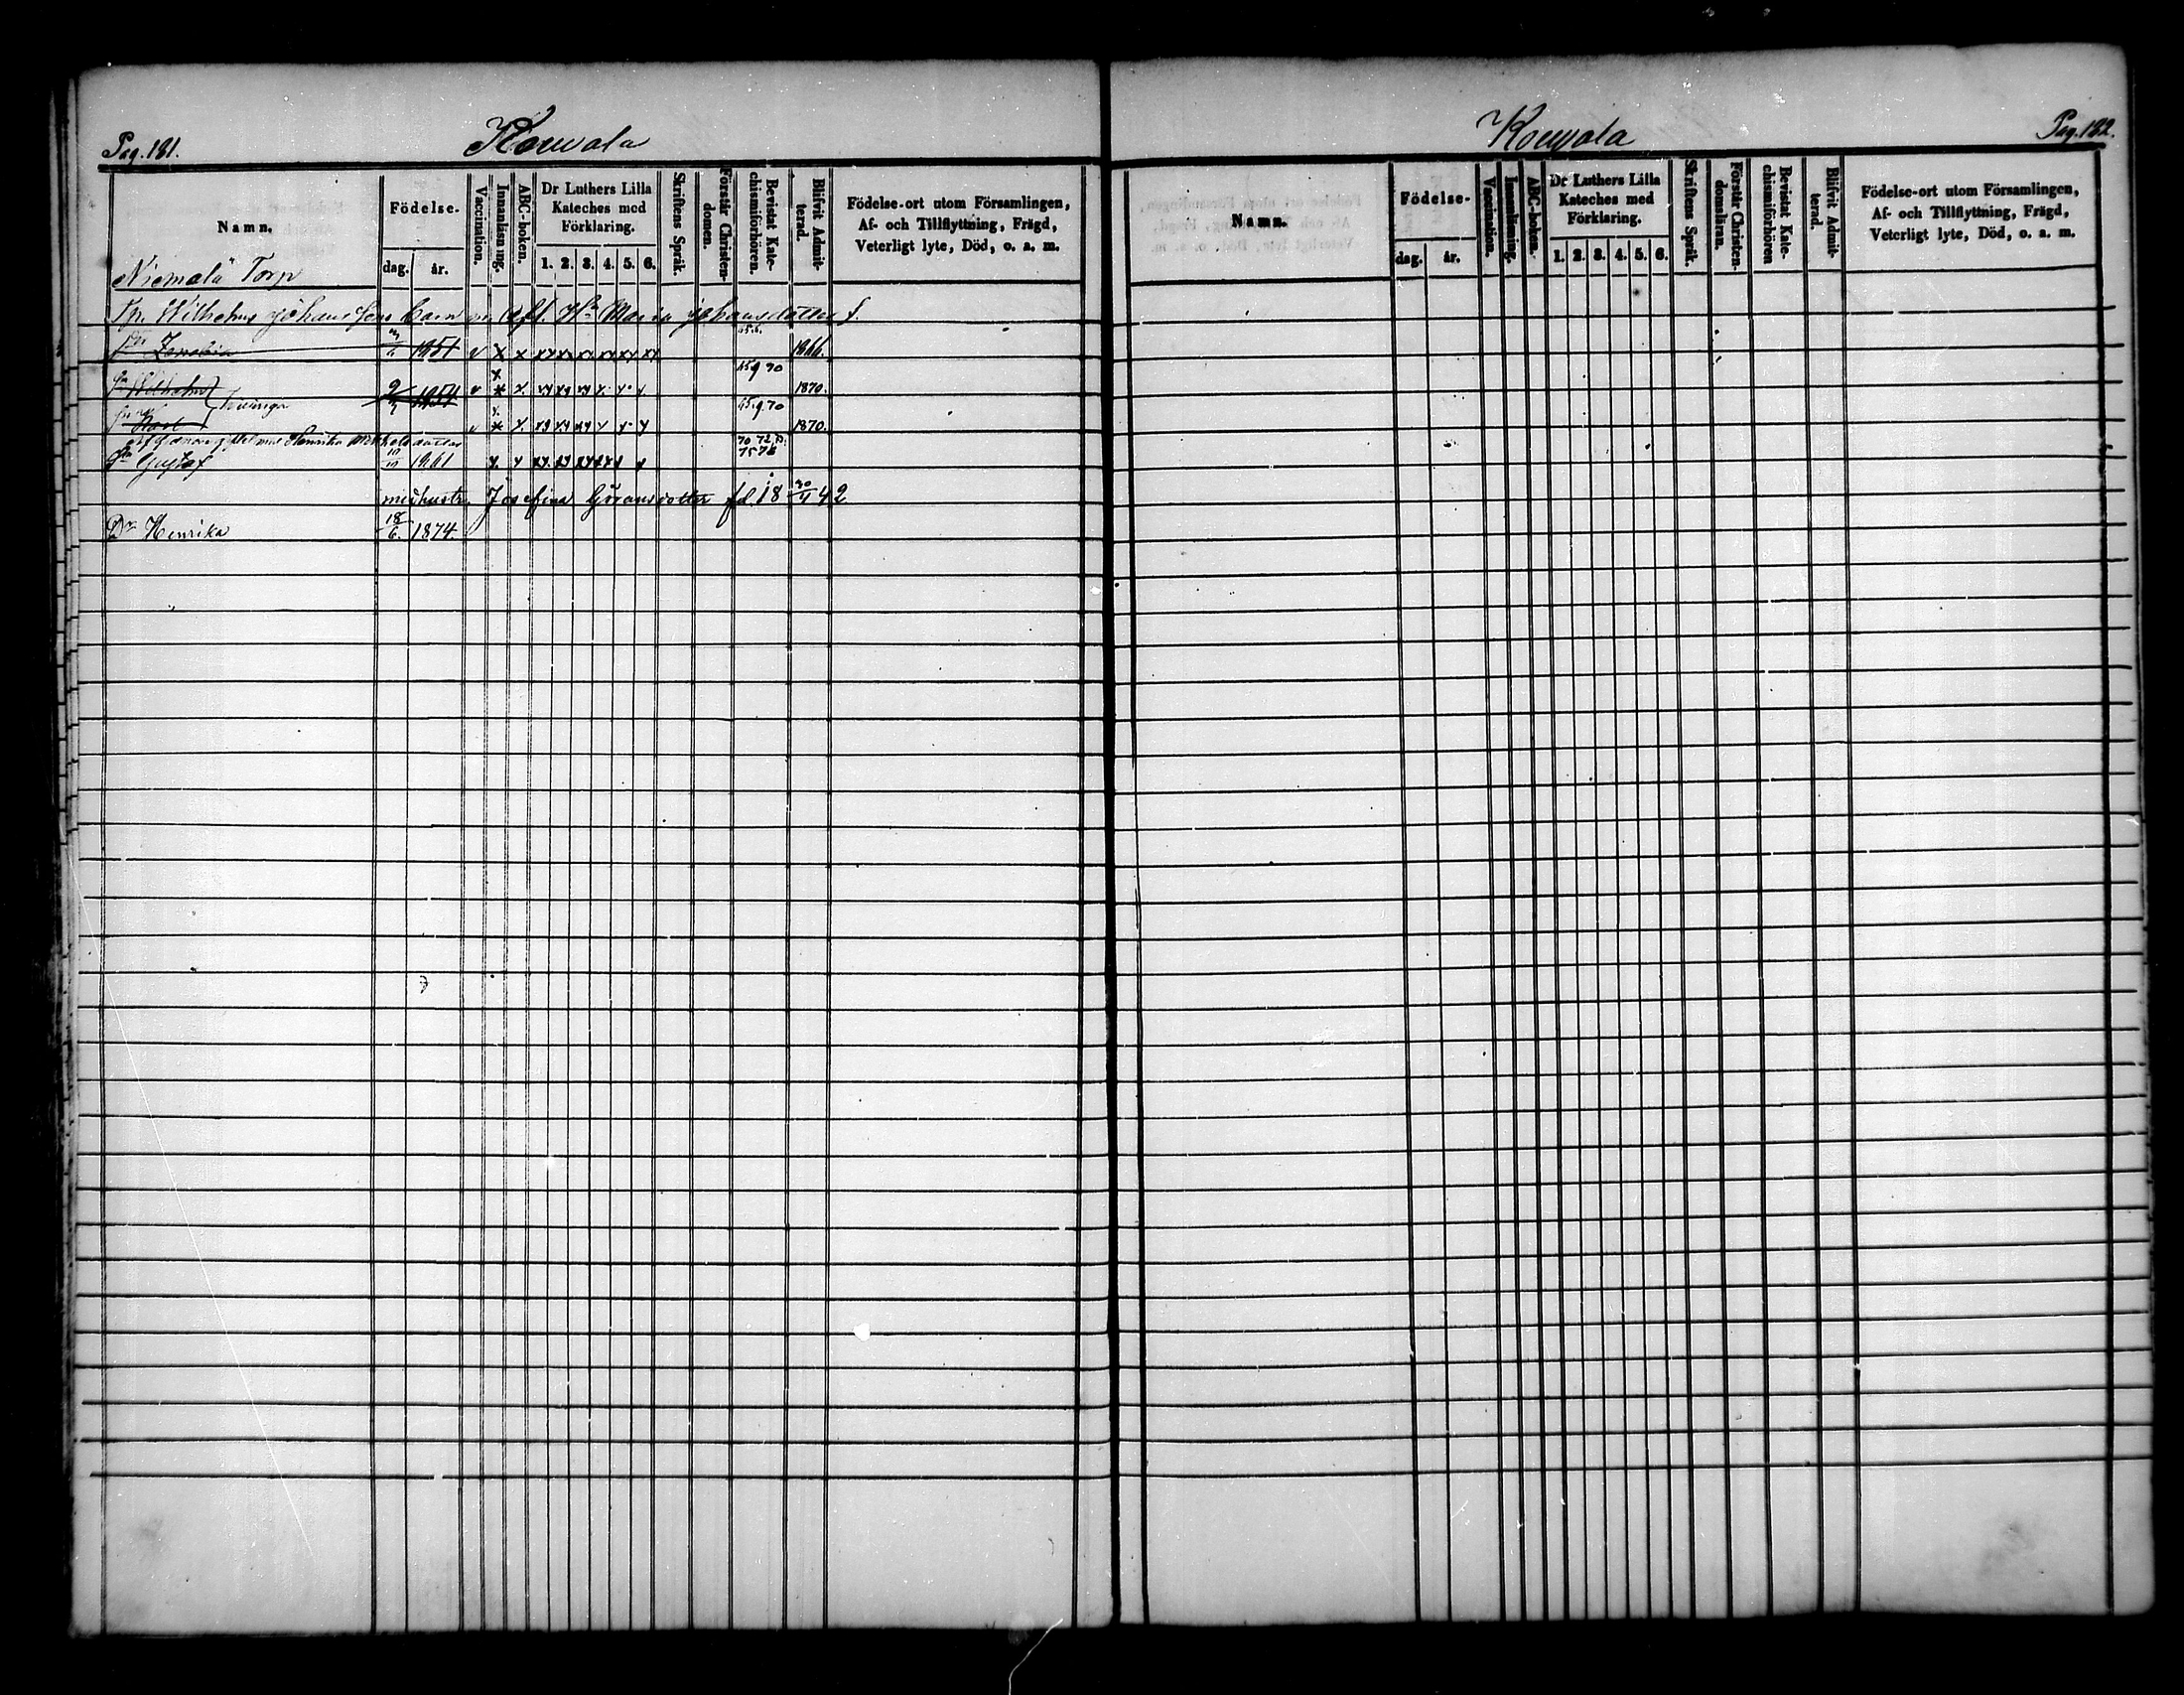 Pag. 181.
Kouvola
Namn.
Födelse-
dag. år.
Vaccination.
Innanläsning.
ABC-boken.
Dr Luthers Lilla Kateches med Förklaring.
1. 2. 3. 4. 5. 6.
Skriftens Språk.
Förstår Christen-domen.
Bevistat Kate-chismiförhören.
Blifvit Admit-terad.
Födelse-ort utom Församlingen,
Af- och Tillflyttning, Frägd,
Veterligt lyte, Död, o. a. m.
Niemalä Torp
Wilhelms Johansson barn m afl. Maria Johansdotter f.
1851 v x x 1866.
Wilhelm 1854 v x x. 65.9 70 1870.
Tvillingar
Karl v x x. 65.9.70 1870.
Henrika
Sn Gustaf 1861 x. x 70 72 75 76
med hustr. Josefina Göransdotter fd. 18 30/4 42
Dr Henrika 18/6. 1874.
Kouvola
Pag. 182.
Namn.
Födelse-
dag. år.
Vaccination.
Innanläsning.
ABC-boken.
Dr Luthers Lilla Kateches med Förklaring.
1. 2. 3. 4. 5. 6.
Skriftens Språk.
Förstår Christen-domsläran.
Bevistat Kate-chismiförhören
Blifvit Admit-terad.
Födelse-ort utom Församlingen,
Af- och Tillflyttning, Frägd,
Veterligt lyte, Död, o. a. m.